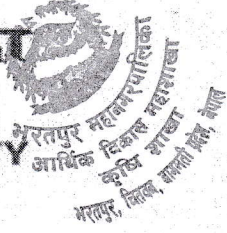 भरतपुर महानगरपालिका
आर्थिक विकास महाशाखा
कृषि शाखा
भरतपुर, चितवन, बागमती प्रदेश, नेपाल